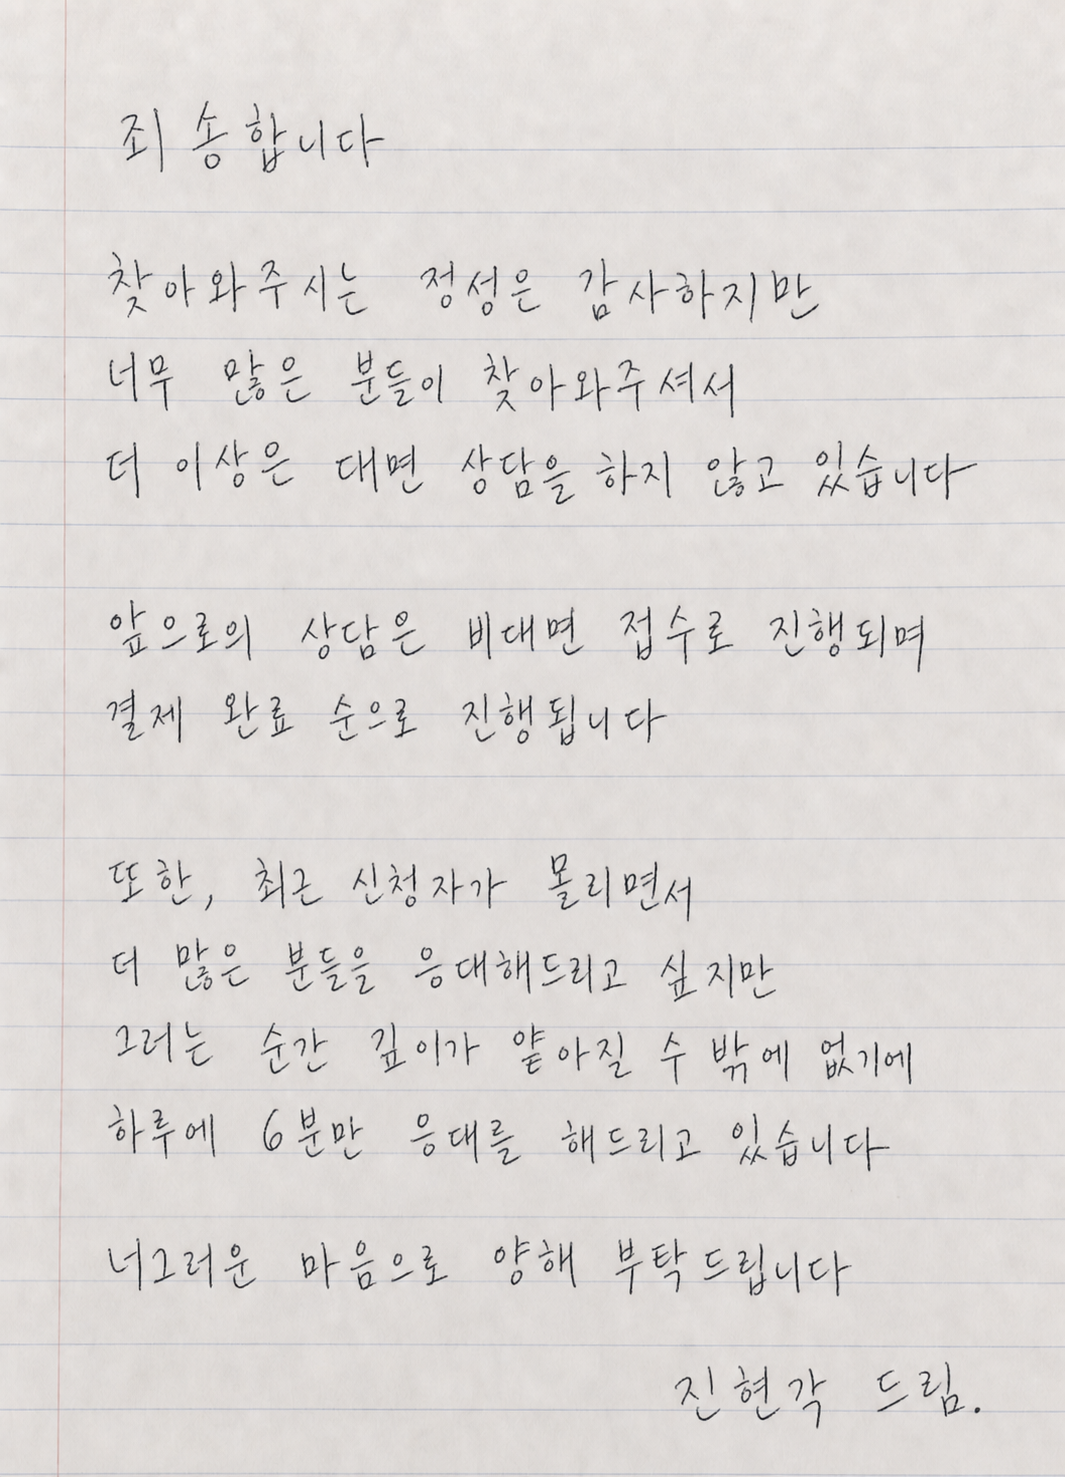 죄송합니다
찾아와주시는 정성은 감사하지만
너무 많은 분들이 찾아와주셔서
더 이상은 대면 상담을 하지 않고 있습니다
앞으로의 상담은 비대면 접수로 진행되며
결제 완료 순으로 진행됩니다
또한, 최근 신청자가 몰리면서
더 많은 분들을 응대해드리고 싶지만
그러는 순간 깊이가 얕아질 수 밖에 없기에
하루에 6분만 응대를 해드리고 있습니다
너그러운 마음으로 양해 부탁드립니다
진현각 드림.